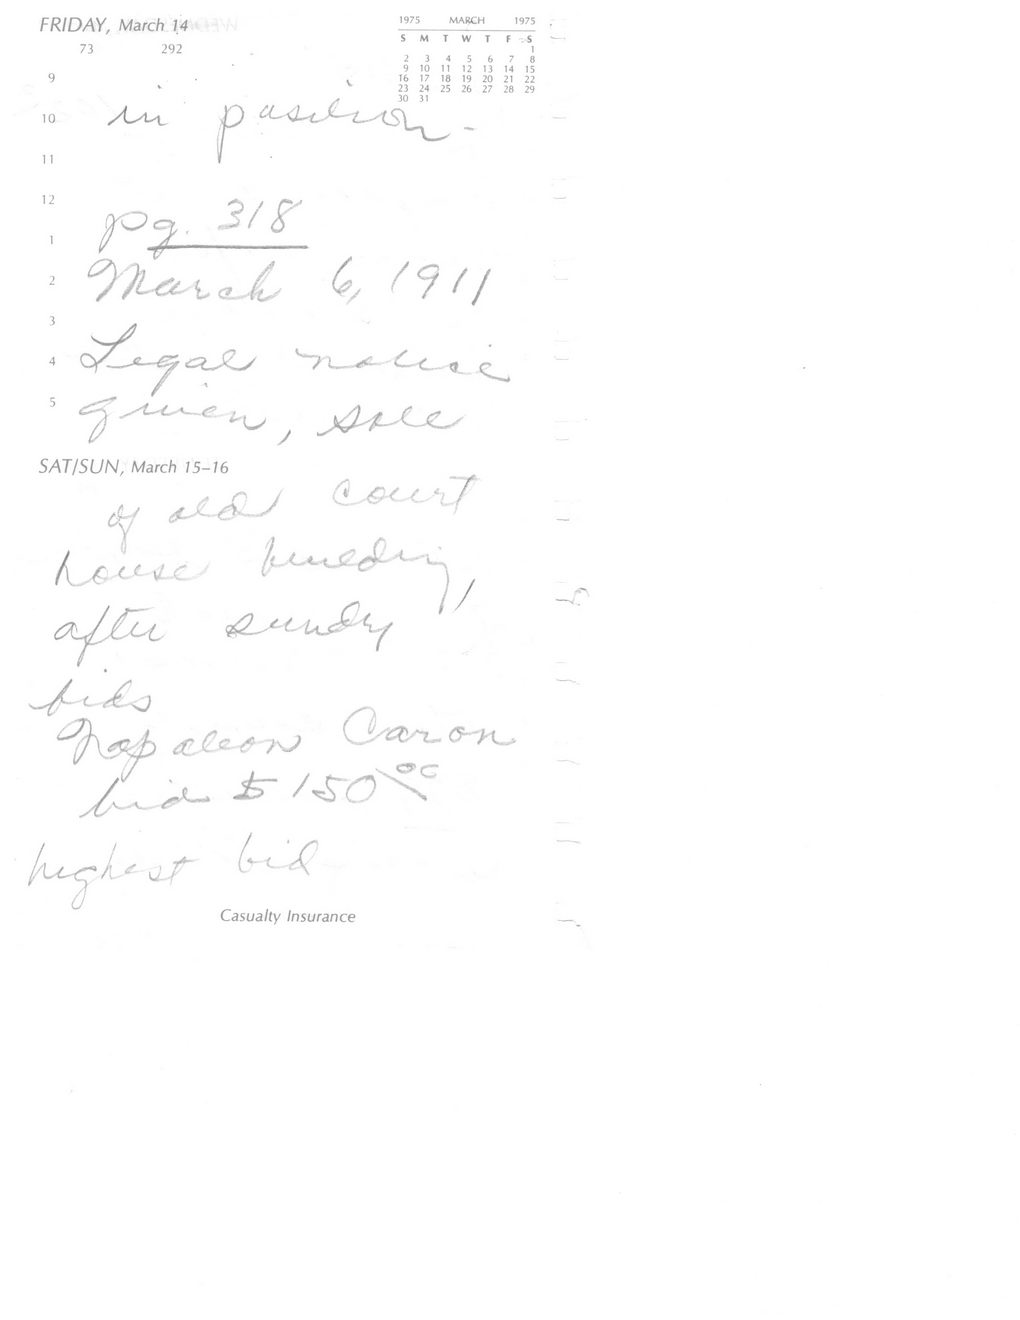 FRIDAY, March 14
73 292
1975 MARCH 1975
S M T W T F S
1
2 3 4 5 6 7 8
9 10 11 12 13 14 15
16 17 18 19 20 21 22
23 24 25 26 27 28 29
30 31
9
10 in position -
11
12
pg. 318
1
2 March 6, 1911
3
4 Legal notice
5 given, sale
SAT/SUN, March 15–16
of old court
house building,
after sundry
bids
Napoleon Caron
bid $150 00
highest bid
Casualty Insurance